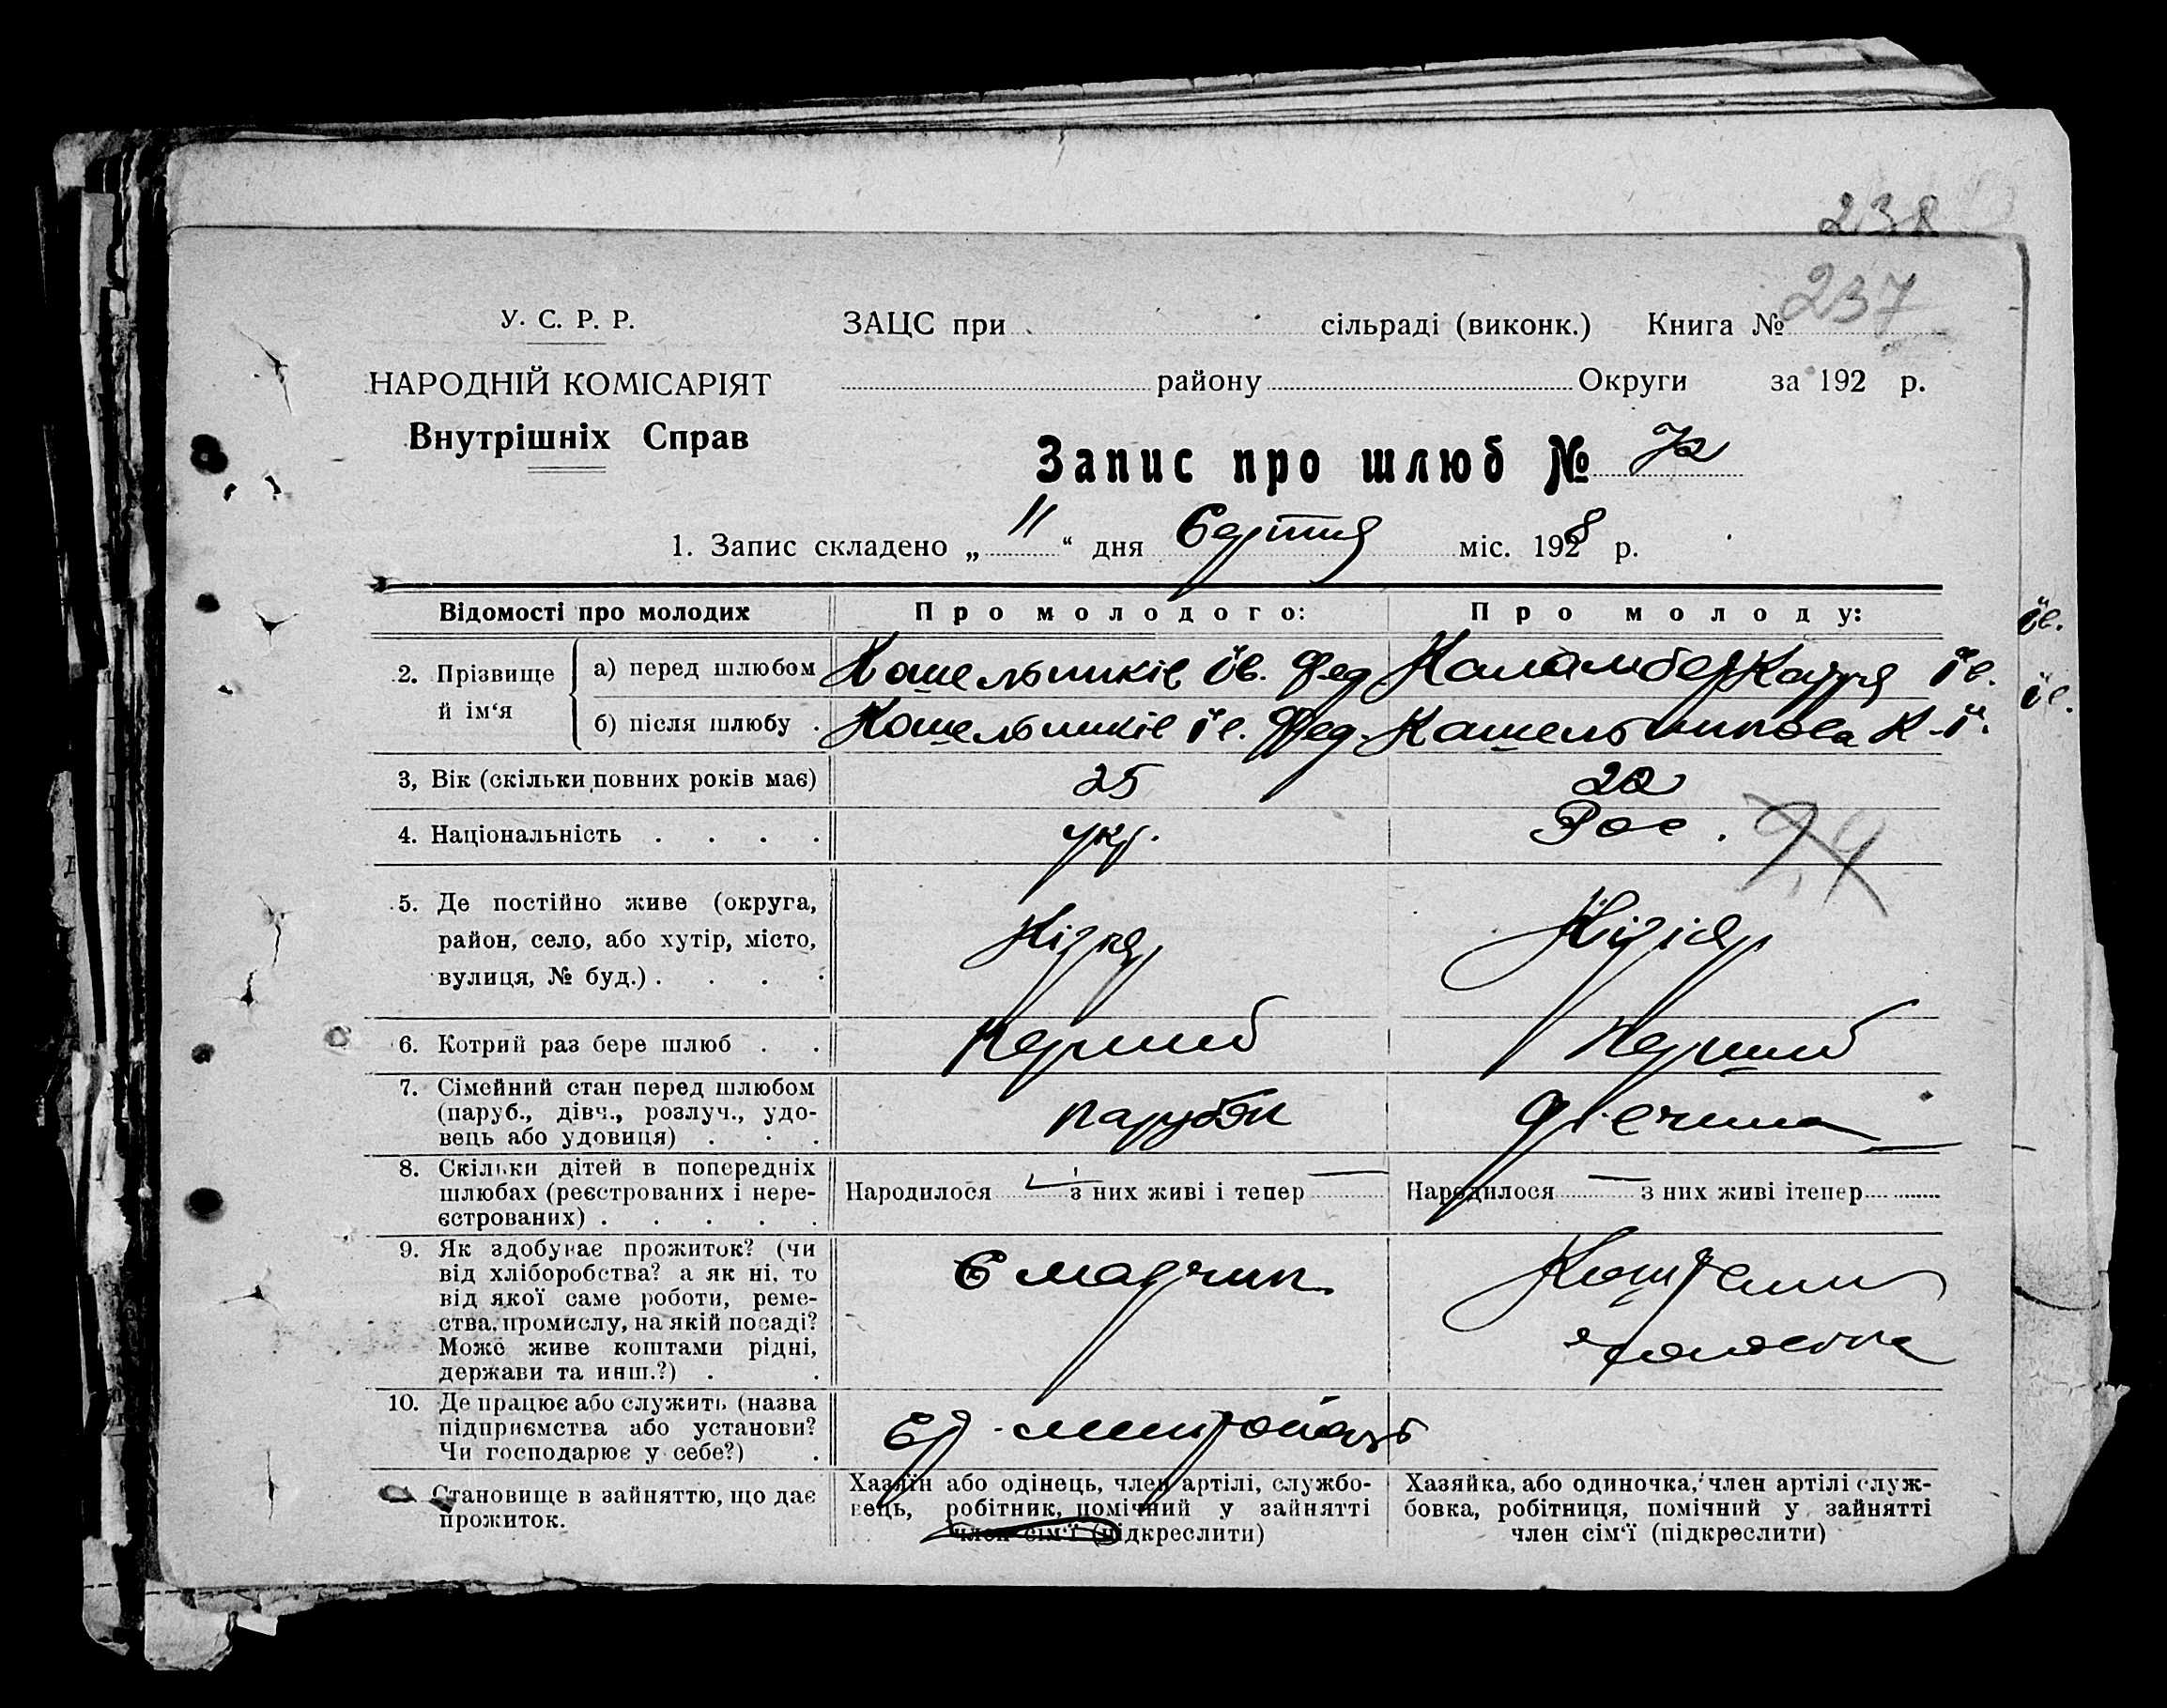 238
237
У. С. Р. Р.
НАРОДНІЙ КОМІСАРІЯТ
Внутрішніх Справ
ЗАЦС при сільраді (виконк.) Книга №
району Округи за 192 р.
Запис про шлюб № 72
1. Запис складено „ 11 “ дня Серпня міс. 1928 р.
Відомості про молодих Про молодого: Про молоду:
2. Прізвище й ім‘я
а) перед шлюбом Кошельників Ів. Фед Ів.
б) після шлюбу . Кошельників Ів. Фед. Кошельникова К. І.
ів.
ів.
3, Вік (скільки повних років має) 25 22
4. Національність . . . . укр. Рос.
5. Де постійно живе (округа,
район, село, або хутір, місто,
вулиця, № буд.) . . . .
6. Котрий раз бере шлюб . . Перший Перший
7. Сімейний стан перед шлюбом
(паруб., дівч., розлуч., удо-
вець або удовиця) . . . парубок дівчина
8. Скільки дітей в попередніх
шлюбах (реєстрованих і нере-
єстрованих) . . . . .
Народилося — з них живі і тепер —
Народилося — з них живі ітепер
9. Як здобуває прожиток? (чи
від хліборобства? а як ні, то
від якої саме роботи, реме-
ства, промислу, на якій посаді?
Може живе коштами рідні,
держави та инш.?) . .
Коштами
чоловіка
10. Де працює або служить (назва
підприємства або установи?
Чи господарює у себе?) .
Становище в зайняттю, що дає
прожиток.
Хазяїн або одінець, член артілі, службо-
вець, робітник, помічний у зайнятті
член сім‘ї (підкреслити)
Хазяйка, або одиночка, член артілі служ-
бовка, робітниця, помічний у зайнятті
член сім‘ї (підкреслити)